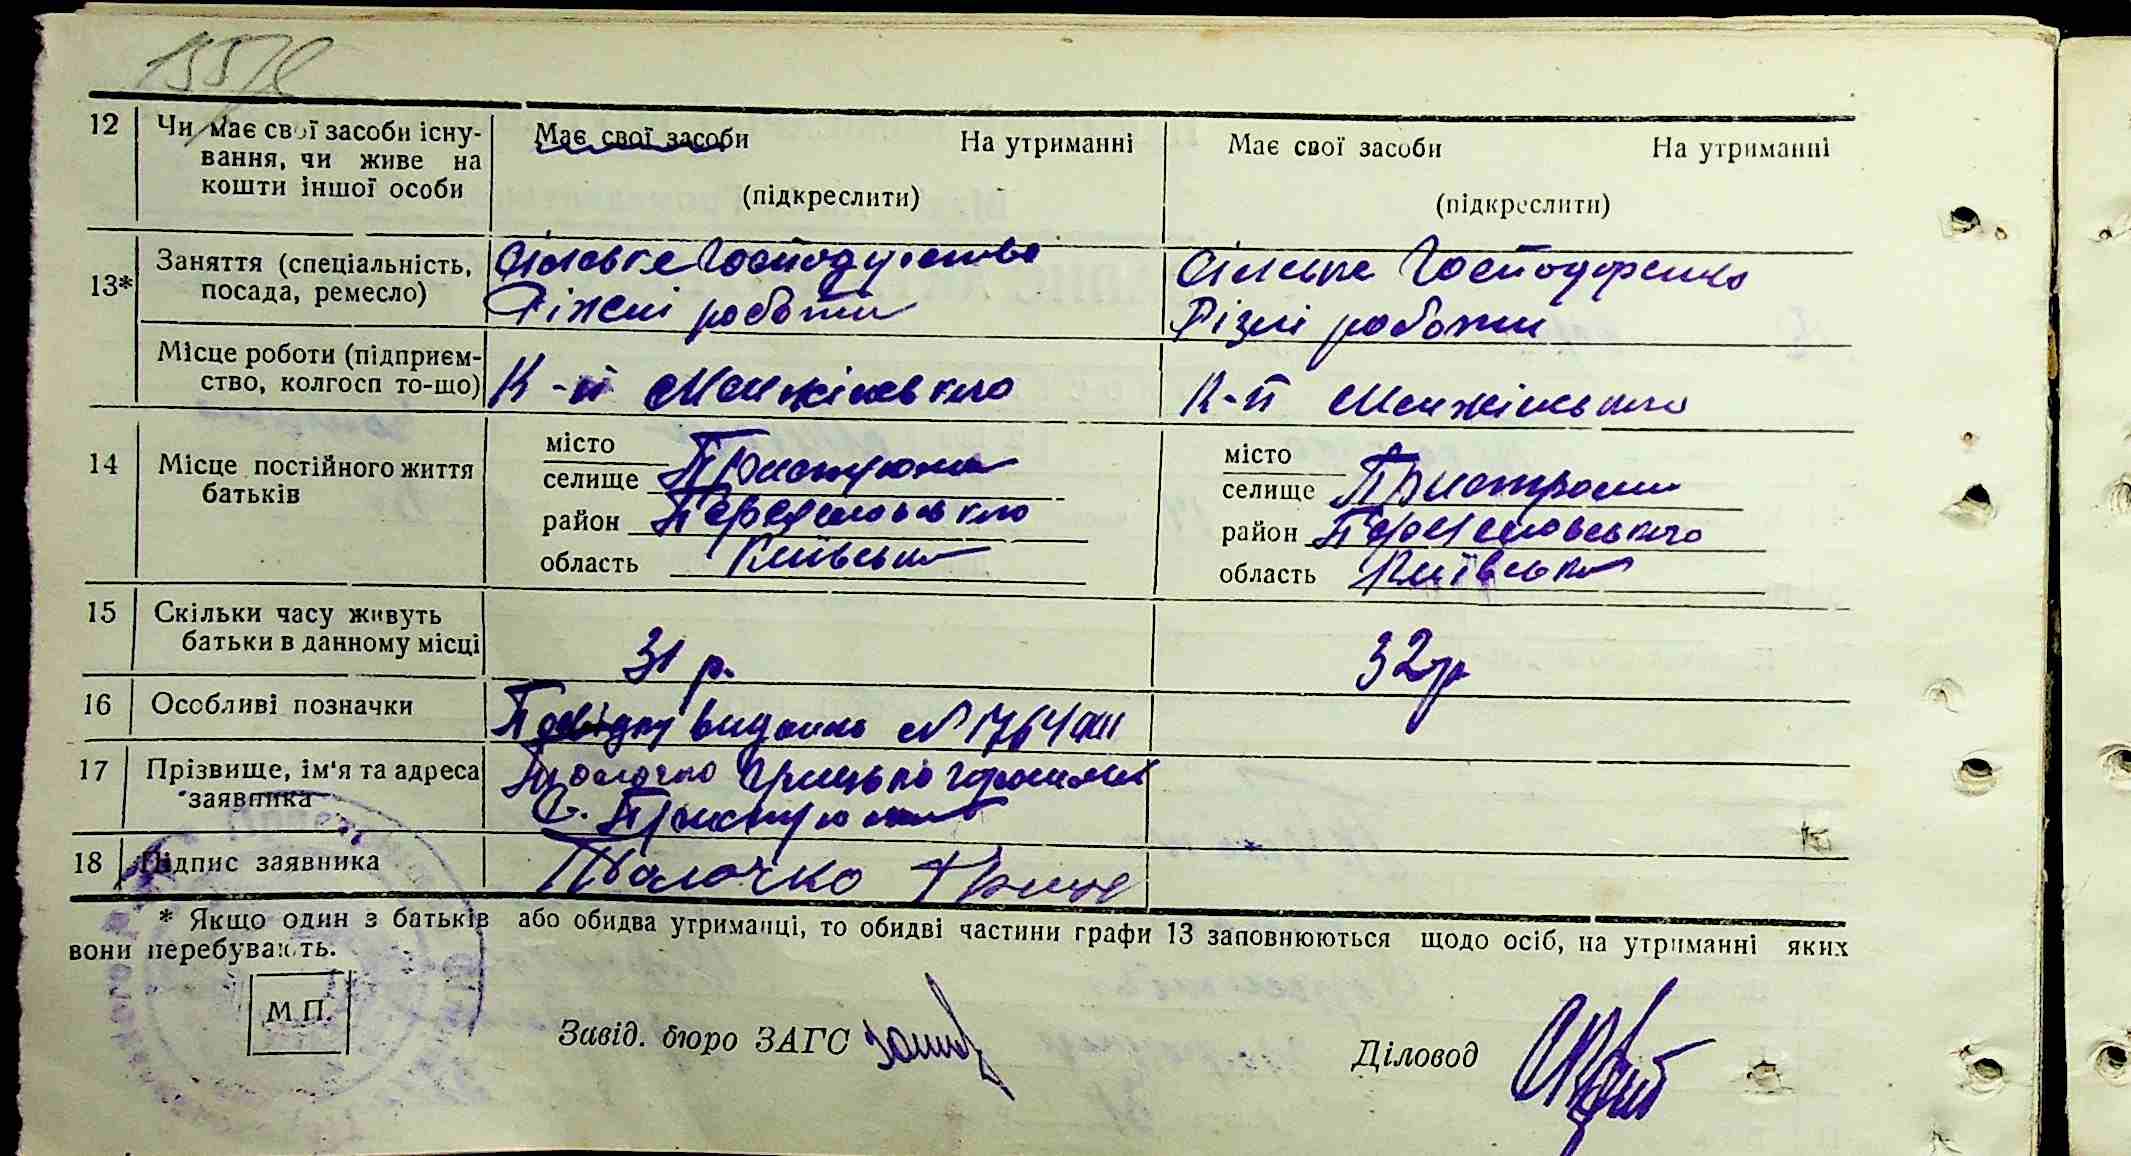 155/2
12 Чи має свої засоби існу- Має свої засоби На утриманні Має свої засоби На утриманні
вання, чи живе на
кошти іншої особи (підкреслити) (підкреслити)
13* Заняття (спеціальність, Сільське Господарство Сільське Господарство
посада, ремесло) Ріжні роботи Різні роботи
Місце роботи (підприєм- К-п Менжінського К-п Менжінського
ство, колгосп то-що)
14 Місце постійного життя місто місто
батьків селище Пристроми селище Пристроми
район Переяславського район Переяславського
область Київська область Київська
15 Скільки часу живуть
батьки в данному місці 31 р. 32 р
16 Особливі позначки Довідку видано №
17 Прізвище, ім'я та адреса
заявника с. Пристроми
18 Підпис заявника
* Якщо один з батьків або обидва утриманці, то обидві частини графи 13 заповнюються щодо осіб, на утриманні яких
вони перебувають.
М П.
Завід. бюро ЗАГС Діловод